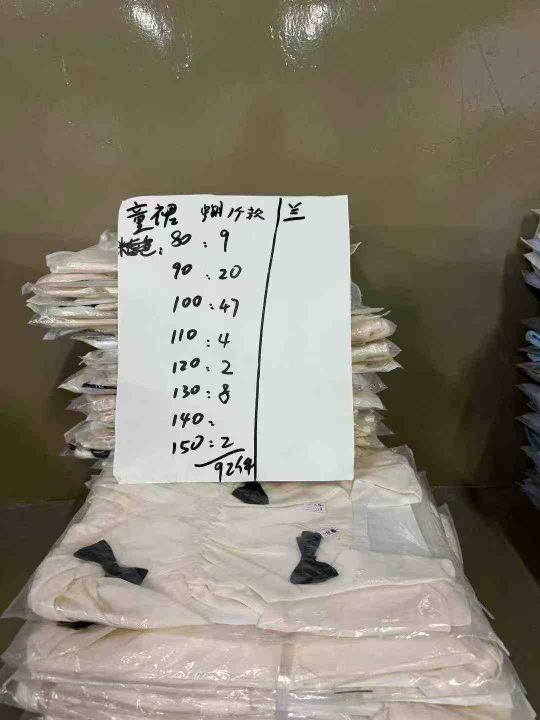 童裙 蝴1款 兰
米杏色: 80: 9
90: 20
100: 47
110: 4
120: 2
130: 8
140:
150: 2
92件